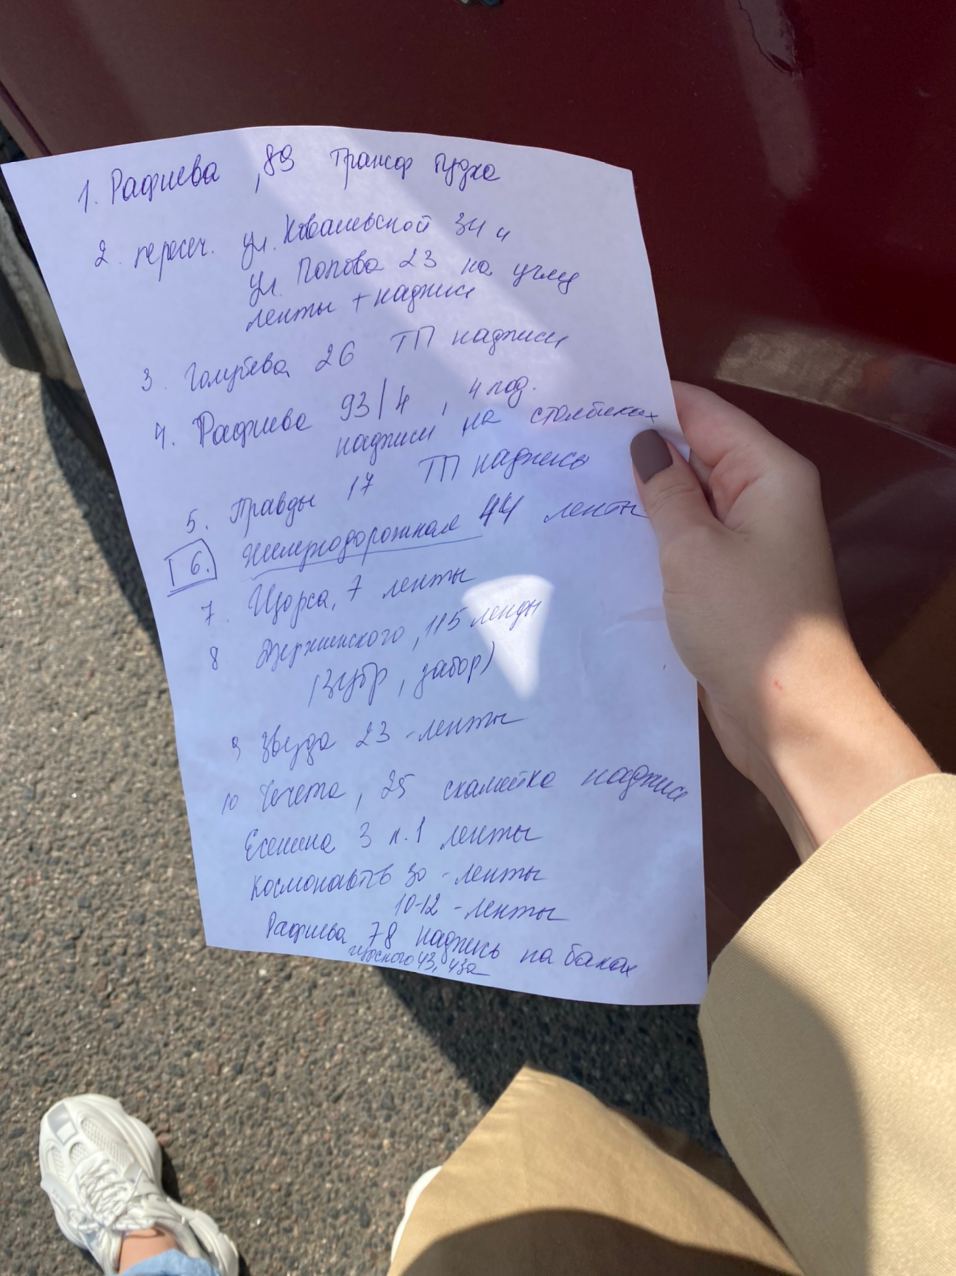 1. Рафиева, 89 Трансф будка
2. пересеч. ул. Ковалевской 34 и
ул. Попова 23 на углу
ленты + надписи
3. Голубева 26 ТП надписи
4. Рафиева 93/4, 4 под.
надписи на столбиках
5. Правды 17 ТП надпись
6. Железнодорожная 44 ленты
7. Щорса, 7 ленты
8 Дзержинского, 115 ленты
(Зубр, забор)
9 Звезда 23 - ленты
10 Чечета, 25 скамейка надписи
Есенина 3 к. 1 ленты
Космонавтов 30 - ленты
10-12 - ленты
Рафиева 78 надпись на баках
43, 43а